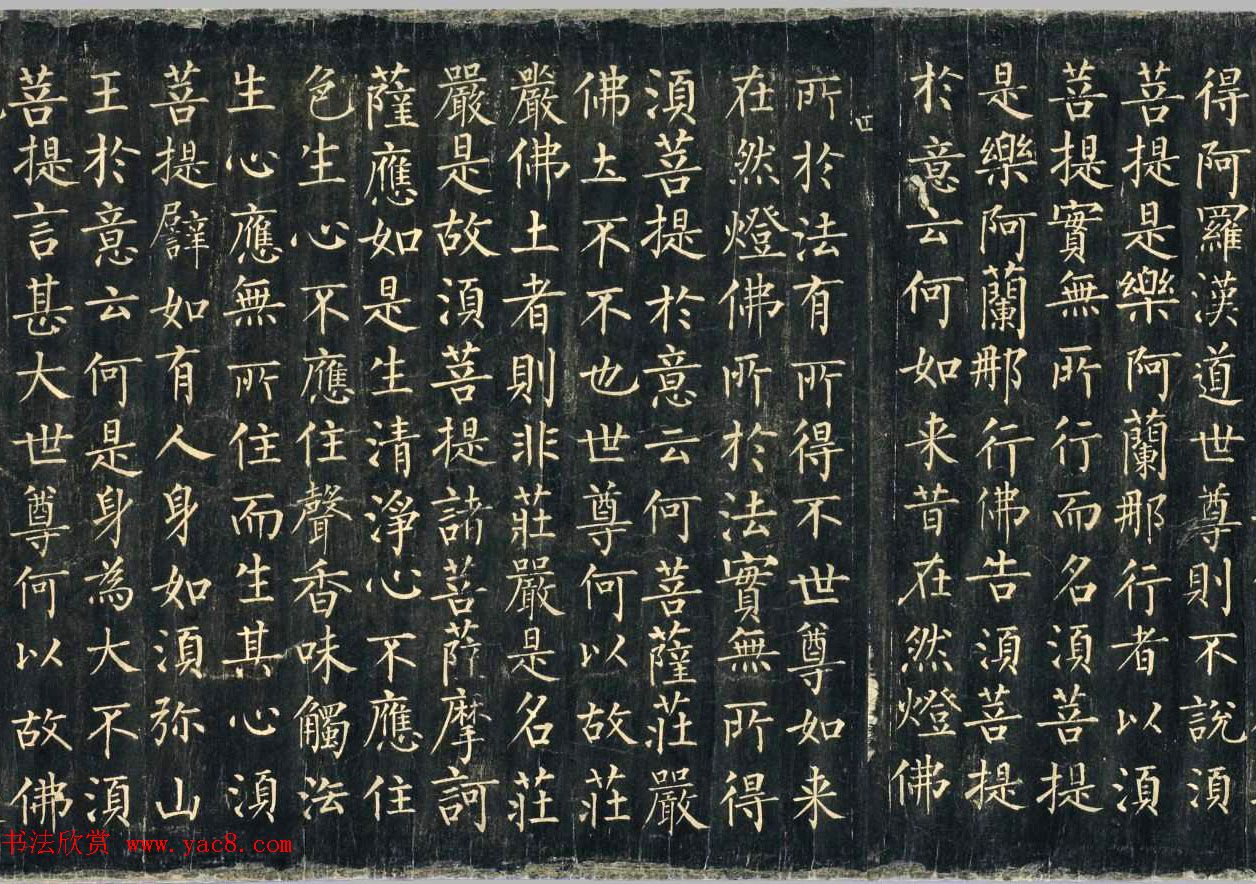 得阿羅漢道世尊則不說須
菩提是樂阿蘭那行者以須
菩提實無所行而名須菩提
是樂阿蘭那行佛告須菩提
於意云何如来昔在然燈佛
所於法有所得不世尊如来
在然燈佛所於法實無所得
須菩提於意云何菩薩莊嚴
佛土不不也世尊何以故莊
嚴佛土者則非莊嚴是名莊
嚴是故須菩提諸菩薩摩訶
薩應如是生清淨心不應住
色生心不應住聲香味觸法
生心應無所住而生其心須
菩提譬如有人身如須弥山
王於意云何是身為大不須
菩提言甚大世尊何以故佛
书法欣赏 www.yac8.com